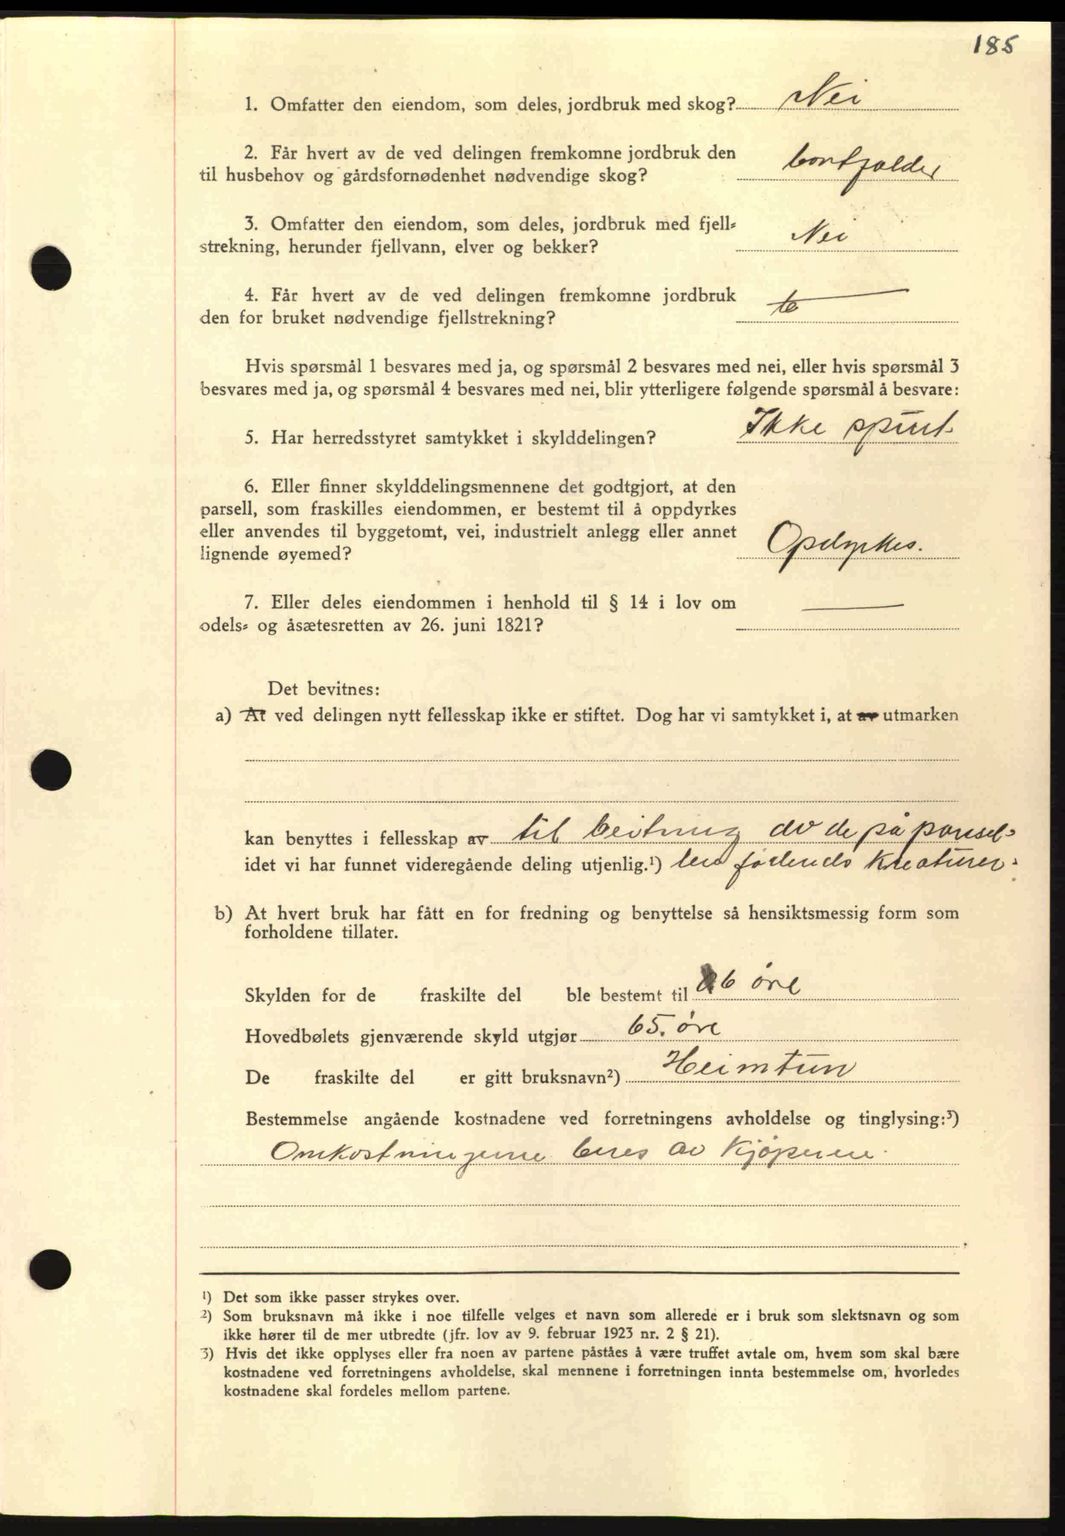 185
1. Omfatter den eiendom, som deles, jordbruk med skog? Nei
2. Får hvert av de ved delingen fremkomne jordbruk den
til husbehov og gårdsfornødenhet nødvendige skog? bortfalder
3. Omfatter den eiendom, som deles, jordbruk med fjell=
strekning, herunder fjellvann, elver og bekker? Nei
4. Får hvert av de ved delingen fremkomne jordbruk
den for bruket nødvendige fjellstrekning?
Hvis spørsmål 1 besvares med ja, og spørsmål 2 besvares med nei, eller hvis spørsmål 3
besvares med ja, og spørsmål 4 besvares med nei, blir ytterligere følgende spørsmål å besvare:
5. Har herredsstyret samtykket i skylddelingen? Ikke spurt
6. Eller finner skylddelingsmennene det godtgjort, at den
parsell, som fraskilles eiendommen, er bestemt til å oppdyrkes
eller anvendes til byggetomt, vei, industrielt anlegg eller annet
lignende øyemed? Opdyrkes.
7. Eller deles eiendommen i henhold til § 14 i lov om
odels= og åsætesretten av 26. juni 1821?
Det bevitnes:
a) At ved delingen nytt fellesskap ikke er stiftet. Dog har vi samtykket i, at av utmarken
kan benyttes i fellesskap av til beitning av de på parsel=
idet vi har funnet videregående deling utjenlig.¹) len føderads kreaturer.
b) At hvert bruk har fått en for fredning og benyttelse så hensiktsmessig form som
forholdene tillater.
Skylden for de fraskilte del ble bestemt til 6 öre
Hovedbølets gjenværende skyld utgjør 65. öre
De fraskilte del er gitt bruksnavn²) Heimtun
Bestemmelse angående kostnadene ved forretningens avholdelse og tinglysing:³)
Omkostningerne beres av kjøperen.
¹) Det som ikke passer strykes over.
²) Som bruksnavn må ikke i noe tilfelle velges et navn som allerede er i bruk som slektsnavn og som
ikke hører til de mer utbredte (jfr. lov av 9. februar 1923 nr. 2 § 21).
3) Hvis det ikke opplyses eller fra noen av partene påståes å være truffet avtale om, hvem som skal bære
kostnadene ved forretningens avholdelse, skal mennene i forretningen innta bestemmelse om, hvorledes
kostnadene skal fordeles mellom partene.